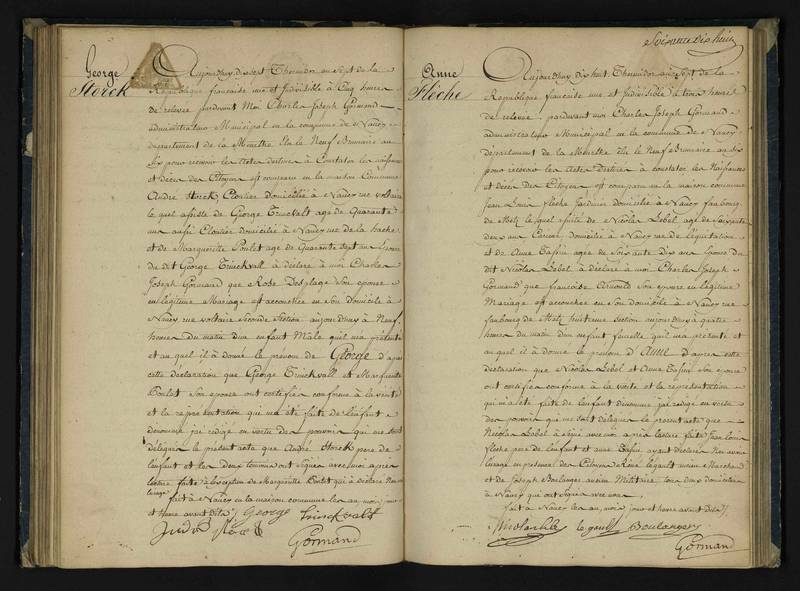 George
Storck
Aujourdhuy dix sept Thermidor an Sept de la
Republique française une et Indivisible à Cinq heures
de relevée pardevant Moi Charles Joseph Gormand
administrateur Municipal en la commune de Nancy
departement de la Meurthe Elu le Neuf Brumaire an
Six pour recevoir les Actes destinés à Constater les naissances
et décès des Citoyens est comparu en la maison Commune
André Storck Cloutier domicilié à Nancy rue voltaire
lequel assisté de George Trinckvalt age de Quarante
un aussi Cloutier domicilié à Nancy rue de la hache
et de Marguerite Poulet age de Quarante sept ans Epouse
du dit George Trinckvall à déclaré à moi Charles
Joseph Gormand que Rose Desplage Son epouse
en légitime Mariage est accouchée en Son domicile à
Nancy rue voltaire Seconde Section aujourdhuy à Neuf
heures du matin d'un enfant Mâle quil m'a présenté
et auquel il à donné le prenom de George d'apres
cette déclaration que George Trinckvall et Marguerite
Poulet Son epouse ont certifiée conforme à la vérité
et la représentation qui m'a été faite de l'enfant
denommé j'ai rédigé en vertu des pouvoirs qui me sont
délégués le présent acte que André Storck pere de
l'enfant et les deux temoins ont signés avec moi apres
lecture faite à l'exception de Marguerite Poulet qui a déclaré
fait à Nancy en la maison commune les an, mois, jour
et heure avant dits George trinckvalt
Gormand
Soixante Dix huit
Anne
Flèche
Aujourdhuy dix huit Thermidor an Sept de la
Republique française une et Indivisible à trois heures
de relevée pardevant moi Charles Joseph Gormand
administrateur Municipal en la commune de Nancy
département de la Meurthe Elu le Neuf Brumaire an six
pour recevoir les Actes Destinés à constater les Naissances
et décès des Citoyens est comparu en la maison commune
Jean Louis flèche Jardinier domicilié à Nancy faubourg
de Metz lequel assisté de Nicolas Lebel age de soixante
deux ans domicilié à Nancy rue de l'équitation
et de Anne Tassin agée de Soixante Dix ans Epouse du
dit Nicolas Lebel à déclaré à moi Charles Joseph
Gormand que françoise Arnould Son epouse en légitime
Mariage est accouchée en son domicile à Nancy rue
faubourg de Metz huitieme section aujourdhuy à quatre
heures du matin d'un enfant femelle quil m'a présenté et
auquel il à donné le prenom d'Anne d'apres cette
déclaration que Nicolas Lebel et Anne Tassin Son epouse
ont certifiée conforme à la vérité et la représentation
qui m'a été faite de l'enfant dénommé j'ai rédigé en vertu
des pouvoirs qui me sont délégués le présent acte que
Nicolas Lebel à Signé avec moi apres lecture faite Jean Louis
fleche pere de l'enfant et anne Tassin ayant déclaré
en presence des Citoyens René legault ancien Marchand
et de Joseph Boulanger ancien Militaire tous deux domiciliés
à Nancy qui ont signés avec moi
fait à Nancy les an, mois, jour et heure avant Dits
legault Boulanger
Gormand